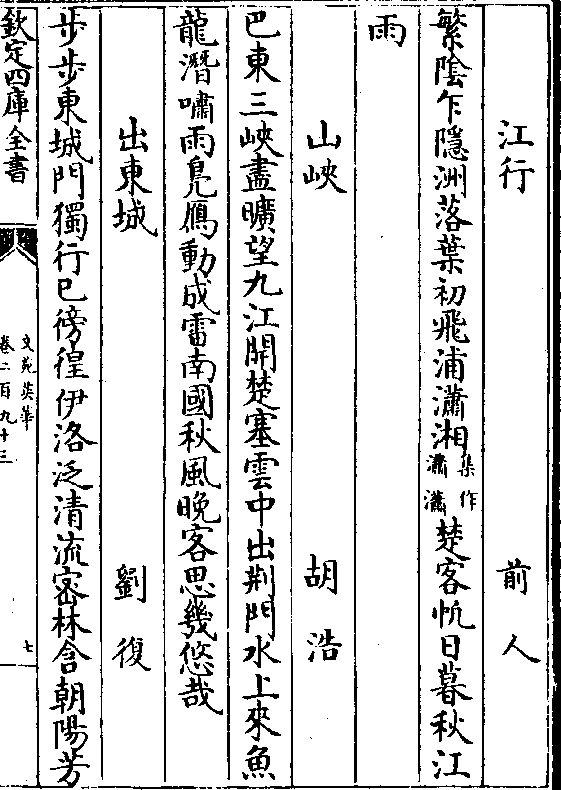 江行　前人
繁陰乍隱洲落葉初飛浦瀟湘集作瀟瀟楚客帆日暮秋江
雨
山峽　胡浩
巴東三峽盡曠望九江開楚塞雲中出荆門水上來魚
龍潛嘯雨鳬鴈動成雷南國秋風晚客思幾悠哉
出東城　劉復
步步東城門獨行已徬徨伊洛泛清流密林含朝陽芳
欽定四庫全書
文苑英華
卷二百九十三
七